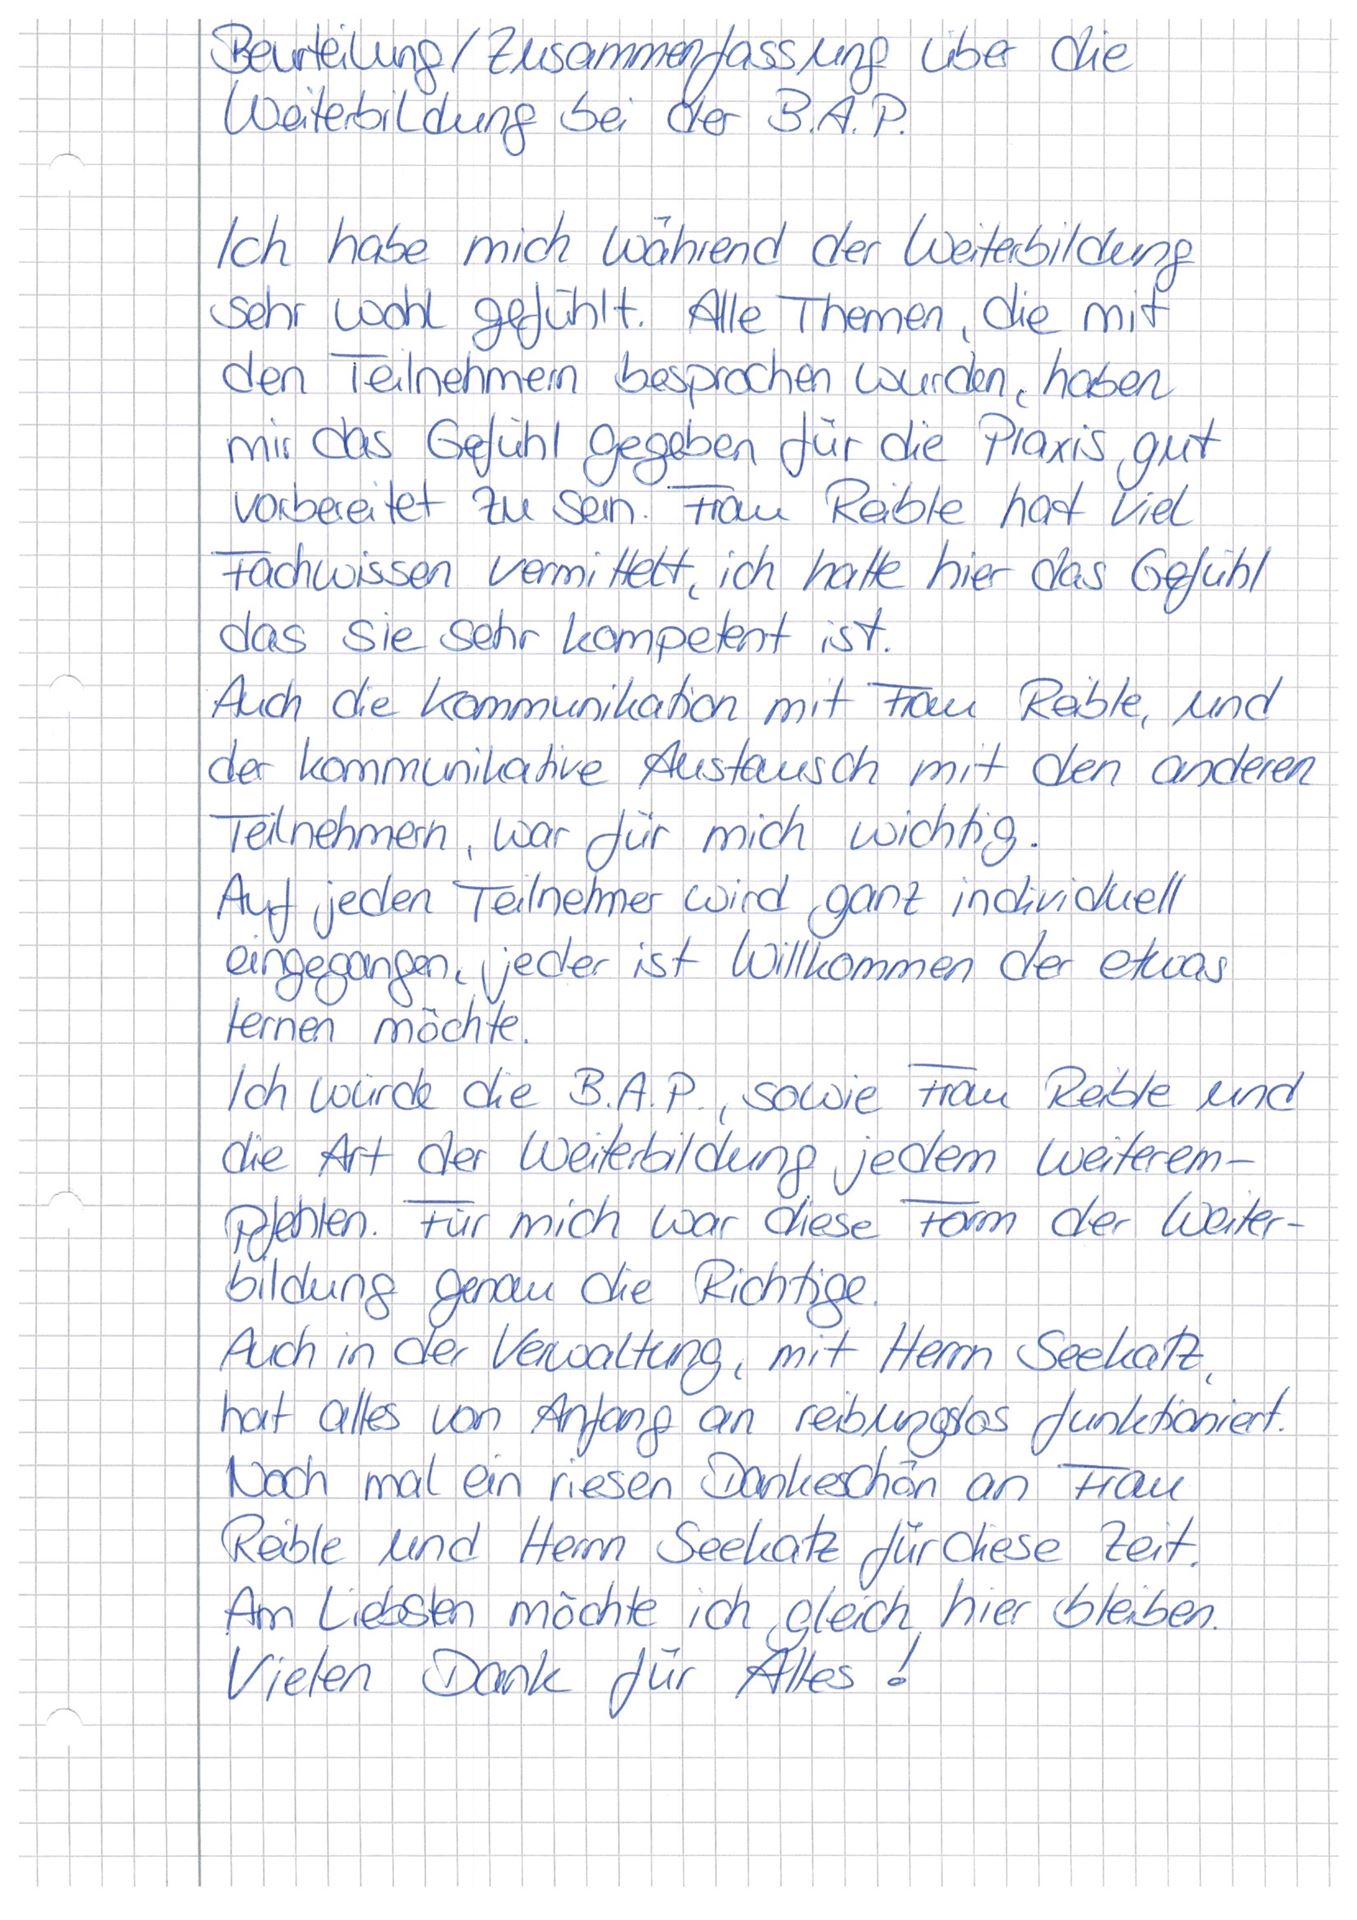 Beurteilung/Zusammenfassung über die
Weiterbildung bei der B.A.P.
Ich habe mich während der Weiterbildung
sehr wohl gefühlt. Alle Themen, die mit
den Teilnehmern besprochen wurden, haben
mir das Gefühl gegeben für die Praxis gut
vorbereitet zu sein. Frau Reible hat viel
Fachwissen vermittelt, ich hatte hier das Gefühl
das sie sehr kompetent ist.
Auch die Kommunikation mit Frau Reible, und
der kommunikative Austausch mit den anderen
Teilnehmern, war für mich wichtig.
Auf jeden Teilnehmer wird ganz individuell
eingegangen, jeder ist Willkommen der etwas
lernen möchte.
Ich würde die B.A.P., sowie Frau Reible und
die Art der Weiterbildung jedem weiterem-
pfehlen. Für mich war diese Form der Weiter-
bildung genau die Richtige.
Auch in der Verwaltung, mit Herrn Seekatz,
hat alles von Anfang an reibungslos funktioniert.
Noch mal ein riesen Dankeschön an Frau
Reible und Herrn Seekatz für diese Zeit.
Am Liebsten möchte ich gleich hier bleiben.
Vielen Dank für Alles!